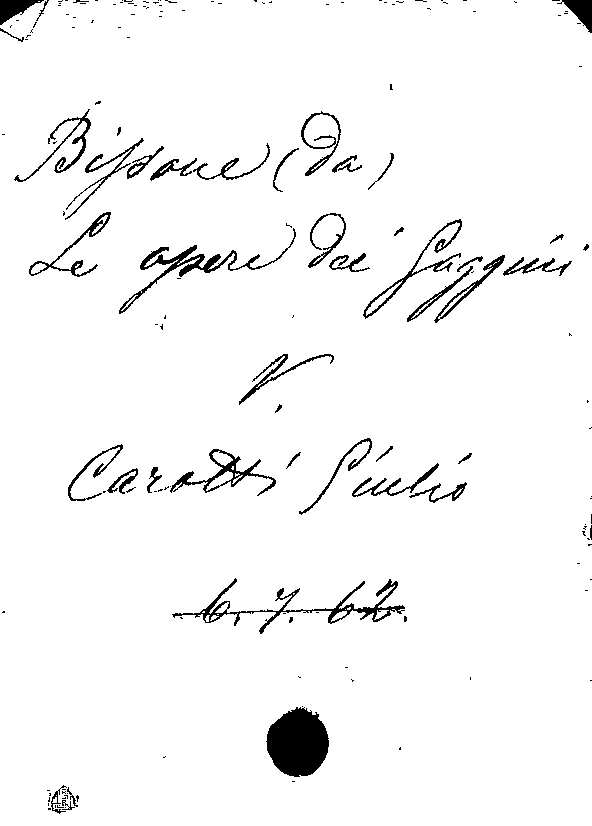 Bissone (da)
Le opere dei Gaggini
V.
Carotti Giulio
6. 7. 62.